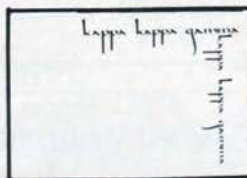 kappa kappa gamma
kappa kappa gamma